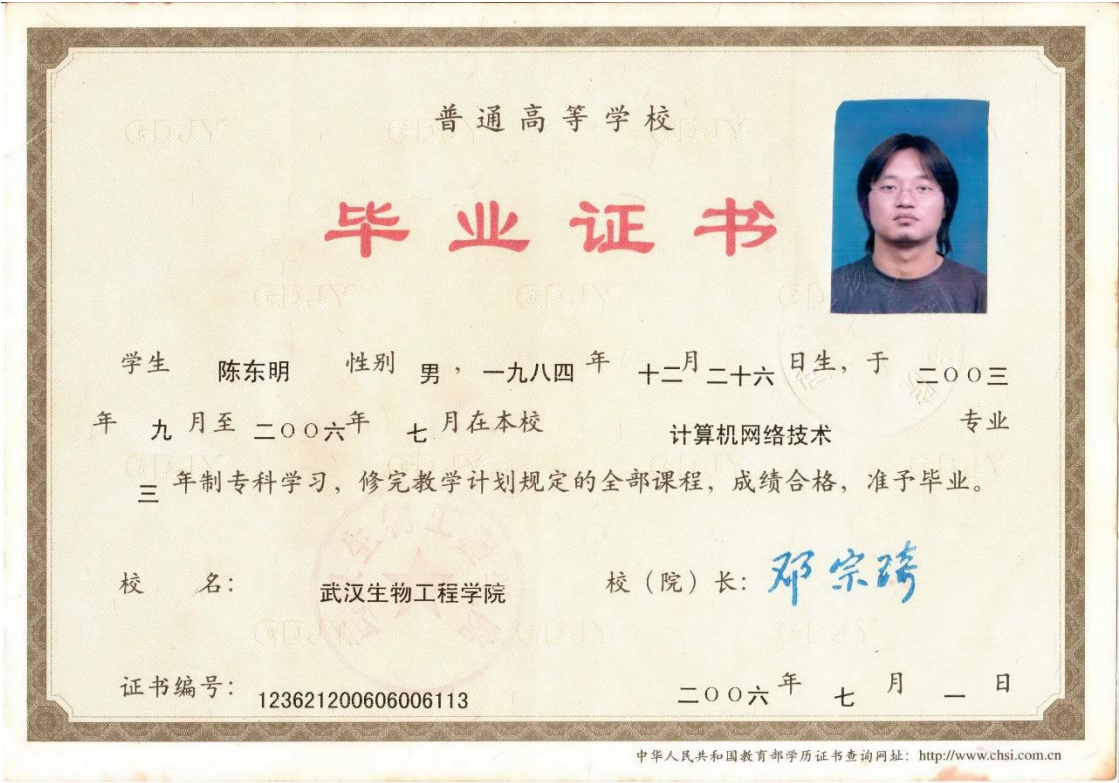 普通高等学校
毕业证书
学生 陈东明 性别 男，一九八四 年 十二月二十六 日生，于 二〇〇三
年 九 月至 二〇〇六年 七 月在本校 计算机网络技术 专业
三 年制专科学习，修完教学计划规定的全部课程，成绩合格，准予毕业。
校 名： 武汉生物工程学院 校（院）长：邓宗琦
证书编号：123621200606006113 二〇〇六年 七 月 一 日
中华人民共和国教育部学历证书查询网址：http://www.chsi.com.cn